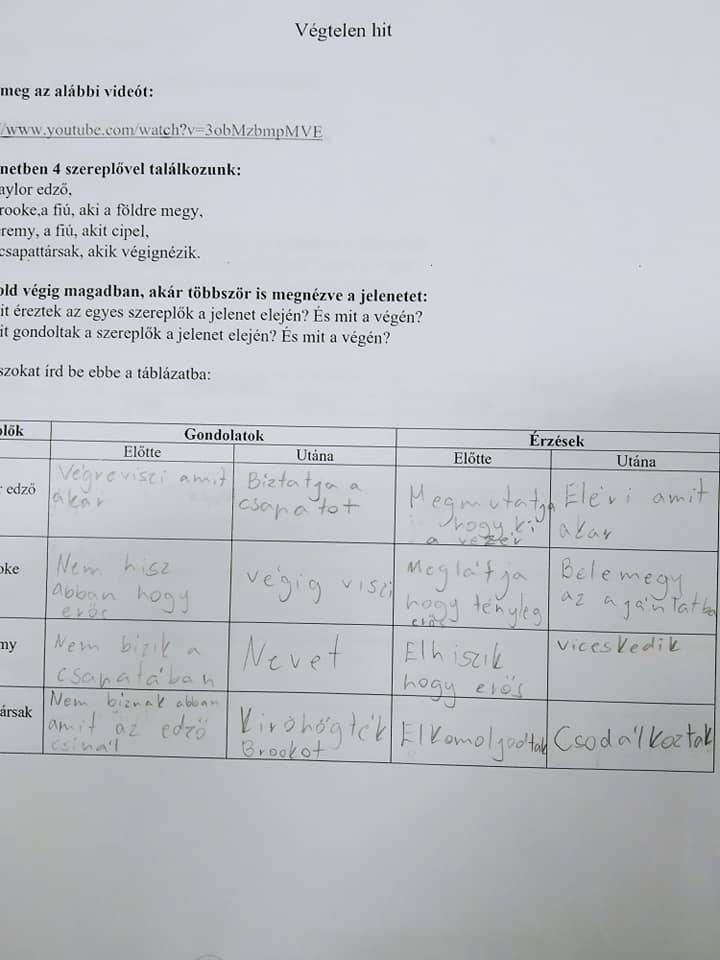 Végtelen hit
meg az alábbi videót:
//www.youtube.com/watch?v=3obMzbmpMVE
netben 4 szereplővel találkozunk:
aylor edző,
rooke,a fiú, aki a földre megy,
remy, a fiú, akit cipel,
csapattársak, akik végignézik.
old végig magadban, akár többször is megnézve a jelenetet:
it éreztek az egyes szereplők a jelenet elején? És mit a végén?
it gondoltak a szereplők a jelenet elején? És mit a végén?
szokat írd be ebbe a táblázatba:
plők Gondolatok Érzések
Előtte Utána Előtte Utána
r edző
Végreviszi amit
akar
Biztatja a
csapatot
Megmutatja
hogy ki
a vezér
Eléri amit
akar
oke
Nem hisz
abban hogy
erős
végig viszi
Meglátja
hogy tényleg
erős
Bele megy
az ajánlatba
my
Nem bízik a
csapatában
Nevet
Elhiszik
hogy erős
viccskedik
ársak
Nem bíznak abban
amit az edző
csinál
Kiröhögték
Brookot
Elkomolyodtak
Csodálkoztak